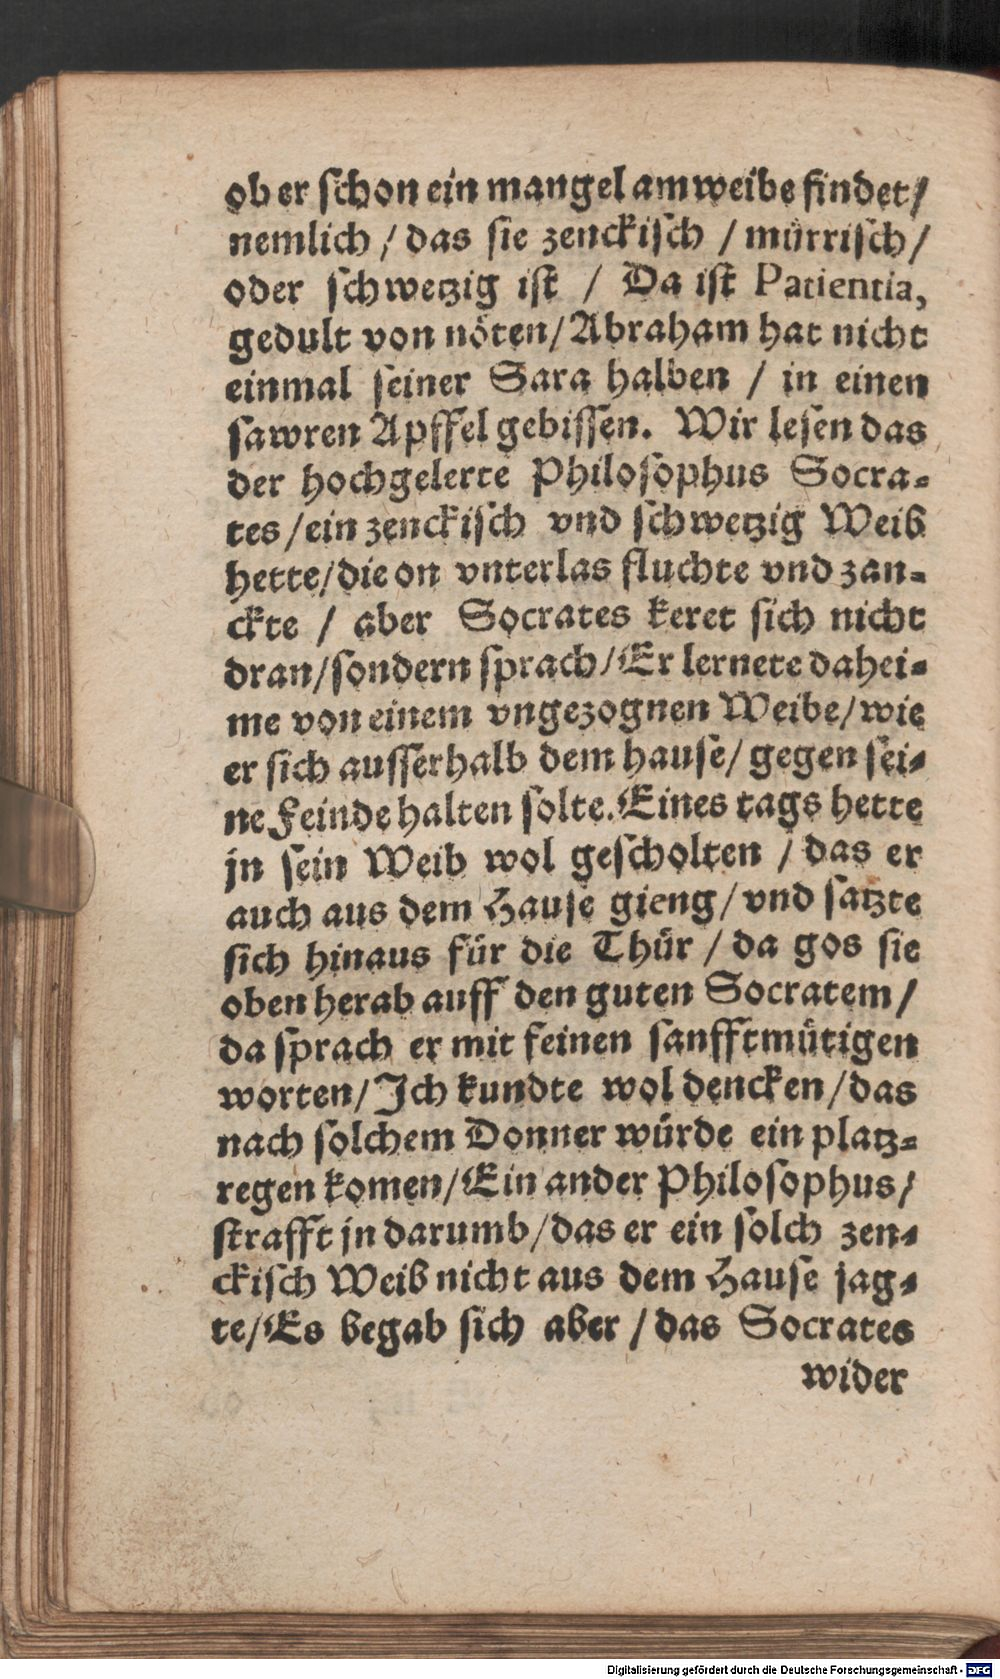 ob er schon ein mangel am weibe findet /
nemlich / das sie zenckisch / mürrisch /
oder schwetzig ist / Da ist Patientia,
gedult von nöten / Abraham hat nicht
einmal seiner Sara halben / in einen
sawren Apffel gebissen. Wir lesen das
der hochgelerte Philosophus Socra-
tes / ein zenckisch vnd schwetzig Weib
hette / die on vnterlas fluchte vnd zan-
ckte / aber Socrates keret sich nicht
dran / sondern sprach / Er lernete dahei-
me von einem vngezognen Weibe / wie
er sich ausserhalb dem hause / gegen sei-
ne Feinde halten solte. Eines tags hette
jn sein Weib wol gescholten / das er
auch aus dem Hause gieng / vnd satzte
sich hinaus für die Thür / da gos sie
oben herab auff den guten Socratem /
da sprach er mit feinen sanfftmütigen
worten / Ich kundte wol dencken / das
nach solchem Donner würde ein platz-
regen komen / Ein ander Philosophus /
strafft jn darumb / das er ein solch zen-
ckisch Weib nicht aus dem Hause jag-
te / Es begab sich aber / das Socrates
wider
Digitalisierung gefördert durch die Deutsche Forschungsgemeinschaft - DFG